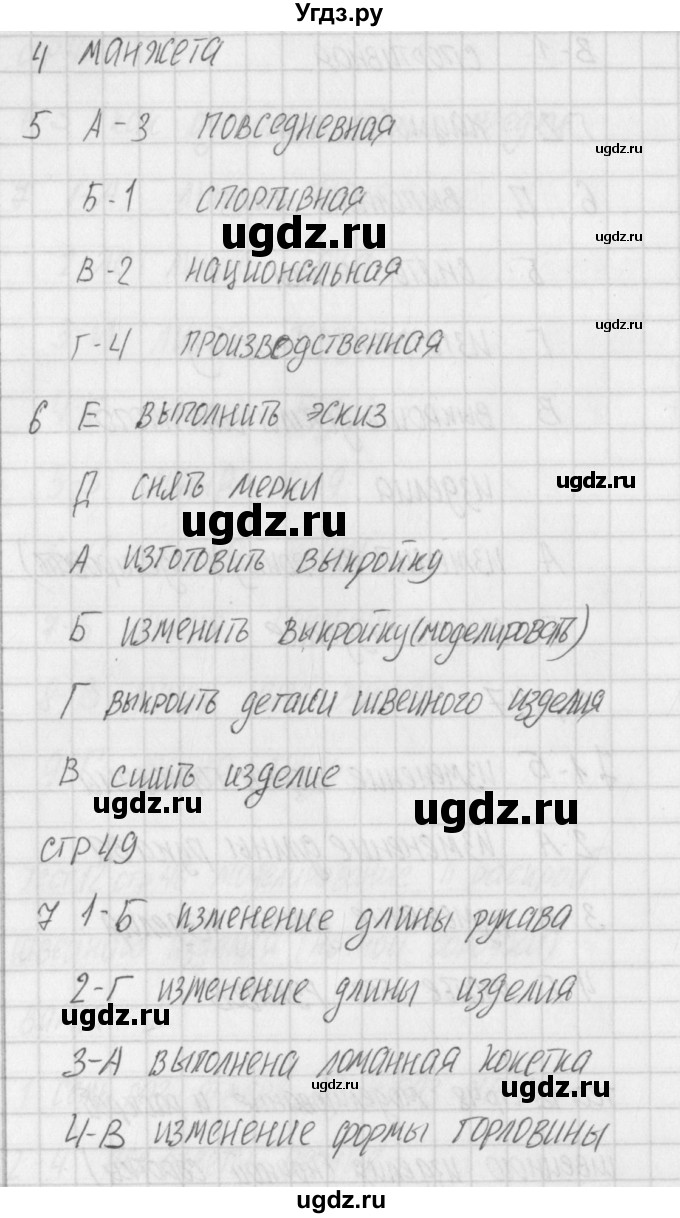 Угдз.ру
4 манжета
ugdz.ru
5 А-3 повседневная
ugdz.ru
Б-1 спортивная
ugdz.ru
ugdz.ru
В-2 национальная
ugdz.ru
Г-4 производственная
6 Е выполнить эскиз
Д снять мерки
ugdz.ru
ugdz.ru
А изготовить выкройку
Б изменить выкройку(моделировать)
Г выкроить детали швейного изделия
В сшить изделие
ugdz.ru
ugdz.ru
стр 49
7 1-Б изменение длины рукава
2-Г изменение длины изделия
ugdz.ru
3-А выполнена ломанная кокетка
ugdz.ru
ugdz.ru
4-В изменение формы горловины
ugdz.ru